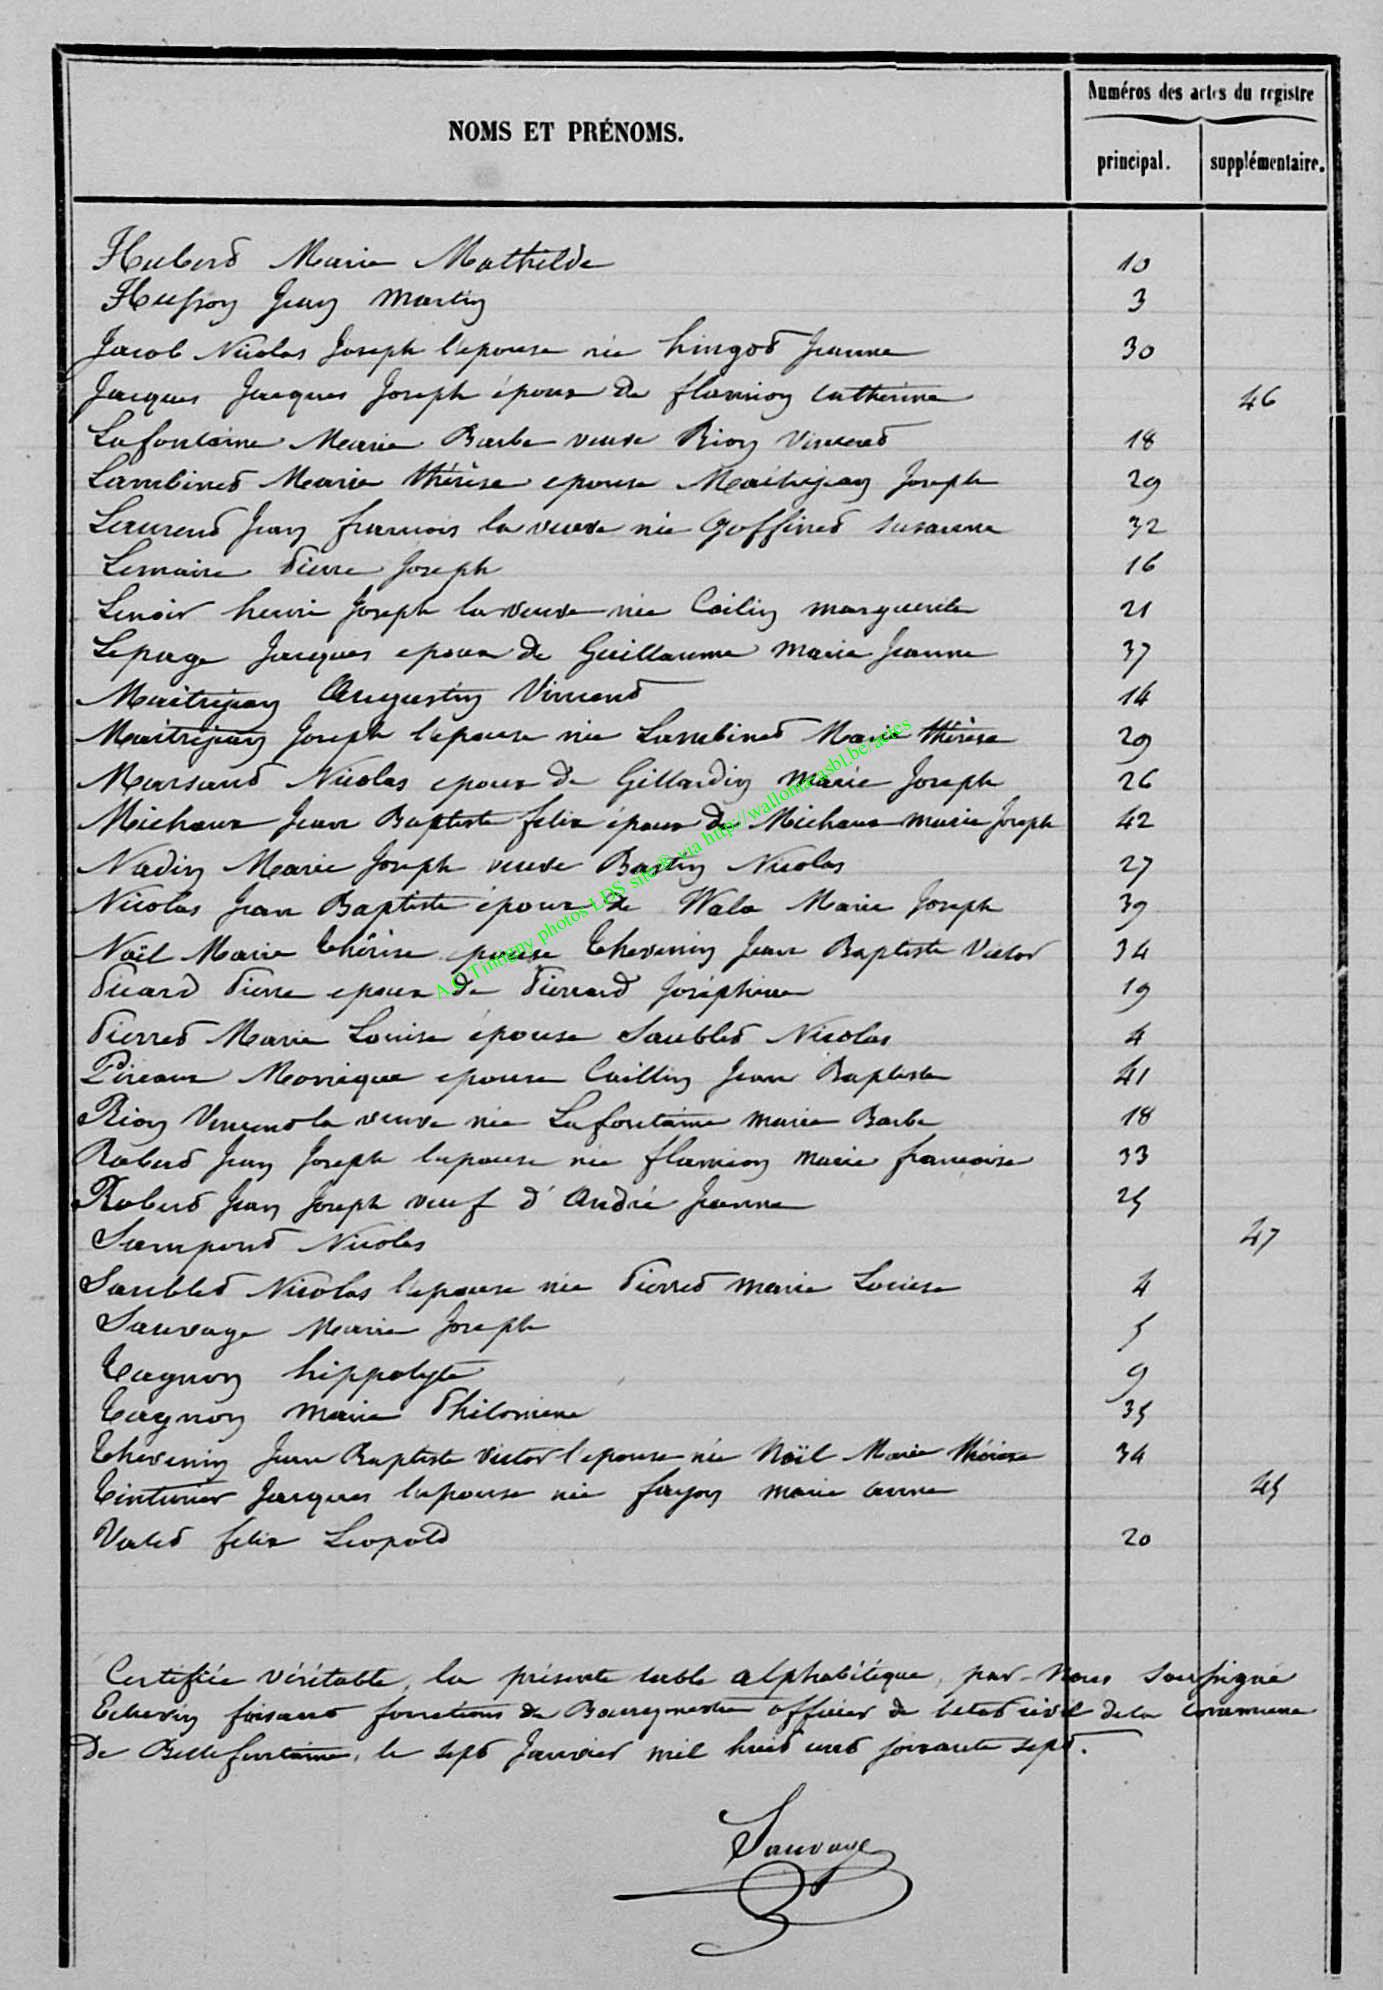 Numéros des actes du registre
NOMS ET PRÉNOMS.
principal. supplémentaire.
Hubert Marie Mathilde 10
Husson Jean Martin 3
Jacob Nicolas Joseph l'epouse née hingot Jeanne 30
Jacques Jacques Joseph époux de flamion catherine 46
Lafontaine Marie Barbe veuve Rion Vincent 18
Lambinet Marie thérèse epouse Maitrejean Joseph 29
Laurent Jean francois la veuve née Goffinet susanne 32
Lemaire Pierre Joseph 16
Lenoir henri Joseph la veuve née Cailin marguerite 21
Lepage Jacques epoux de Guillaume Marie Jeanne 37
Maitrejean Augustin Vincent 14
Maitrejean Joseph l'epouse née Lambinet Marie thérèse 29
Marsaut Nicolas epoux de Gillardin Marie Joseph 26
Michaux Jean Baptiste felix époux de Michaux marie Joseph 42
Nadin Marie Joseph veuve Bastin Nicolas 27
Nicolas Jean Baptiste époux de Wala Marie Joseph 39
Noël Marie Thérèse epouse Thevenin Jean Baptiste Victor 34
Picard Pierre epoux de Pierrard Joséphine 19
Pierret Marie Louise épouse Saublet Nicolas 4
Pireaux Monique epouse Caillin Jean Baptiste 41
Rion Vincent la veuve née Lafontaine marie Barbe 18
Robert Jean Joseph l'epouse née flamion marie francoise 33
Robert Jean Joseph veuf d'André Jeanne 25
Sampont Nicolas 47
Saublet Nicolas l'epouse née Pierret marie Louise 4
Sauvage Marie Joseph 5
Tagnon hippolyte 9
Tagnon marie Philomene 35
Thevenin Jean Baptiste victor l'epouse née Noël Marie thérèse 34
Tinturier Jacques l'epouse née fayon marie anne 45
Valet felix Leopold 20
Certifiée véritable, la présente table alphabétique, par Nous Soussigné
Echevin faisant fonctions de Bourgmestre officier de l'etat civil de la Commune
de Bellefontaine, le sept Janvier mil huit cent soixante sept.
Sauvage
A.C. Tintigny photos LDS site © via http://wallonia.asbl.be/actes